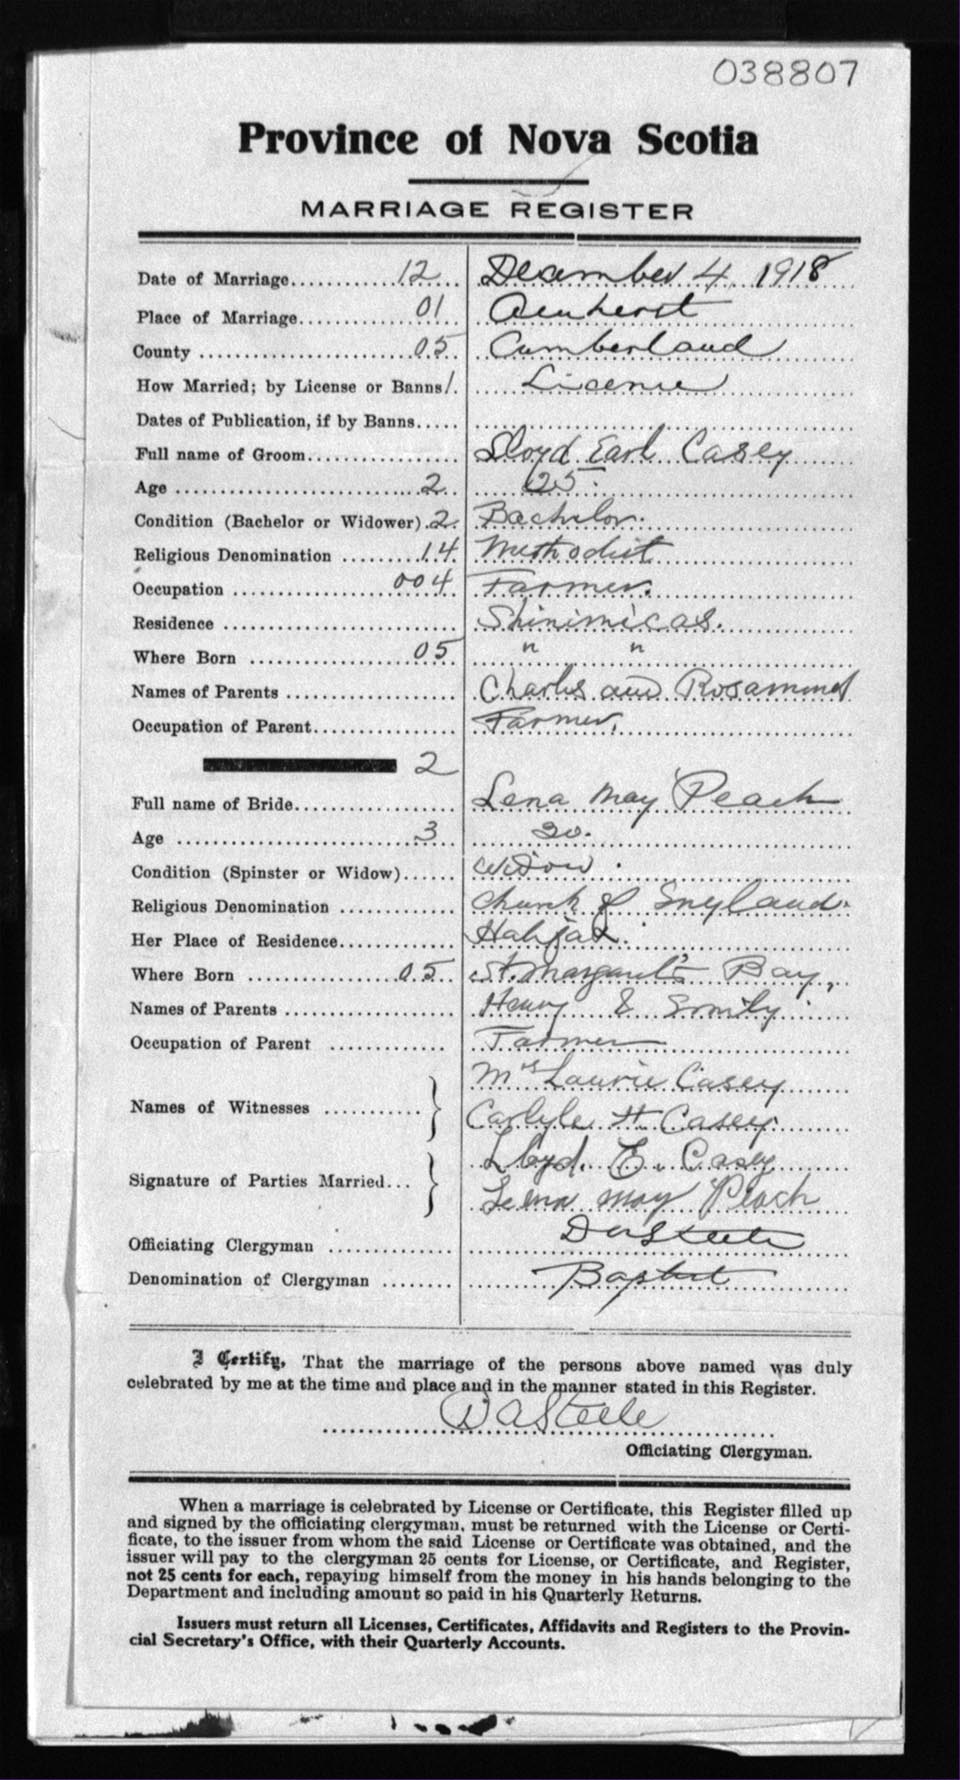 038807
Province of Nova Scotia
MARRIAGE REGISTER
Date of Marriage............12 December 4, 1918
Place of Marriage............01 Amherst
County ............05 Cumberland
How Married; by License or Banns 1. License
Dates of Publication, if by Banns.....
Full name of Groom............ Lloyd Earl Casey
Age ............2 25.
Condition (Bachelor or Widower) .2 Bachelor.
Religious Denomination ........14 Methodist
Occupation ............004 Farmer.
Residence ............ Shinimicas.
Where Born ............05 " "
Names of Parents ............ Charles and Rosammond
Occupation of Parent............ Farmer.
2
Full name of Bride............ Lena May Peach
Age ............3 30.
Condition (Spinster or Widow)...... Widow.
Religious Denomination ............ Church of England.
Her Place of Residence............ Halifax.
Where Born ............05 St. Margaret's Bay,
Names of Parents ............ Henry & Emily
Occupation of Parent ............ Farmer
Names of Witnesses ............ Mrs Laurie Casey
Carlyle H. Casey.
Signature of Parties Married... Lloyd. E. Casey
Lena May Peach
Officiating Clergyman ............ DASteele
Denomination of Clergyman ........ Baptist
I Certify, That the marriage of the persons above named was duly
celebrated by me at the time and place and in the manner stated in this Register.
DASteele
Officiating Clergyman.
When a marriage is celebrated by License or Certificate, this Register filled up
and signed by the officiating clergyman, must be returned with the License or Certi-
ficate, to the issuer from whom the said License or Certificate was obtained, and the
issuer will pay to the clergyman 25 cents for License, or Certificate, and Register,
not 25 cents for each, repaying himself from the money in his hands belonging to the
Department and including amount so paid in his Quarterly Returns.
Issuers must return all Licenses, Certificates, Affidavits and Registers to the Provin-
cial Secretary's Office, with their Quarterly Accounts.